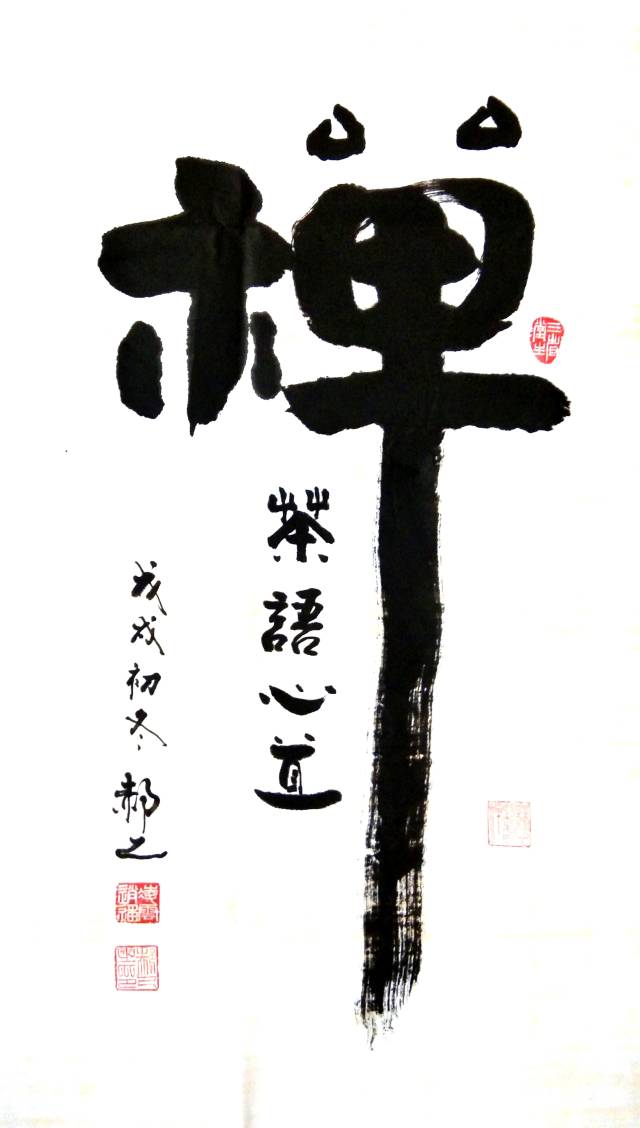 禅
茶語心道
戊戌初冬 郝之